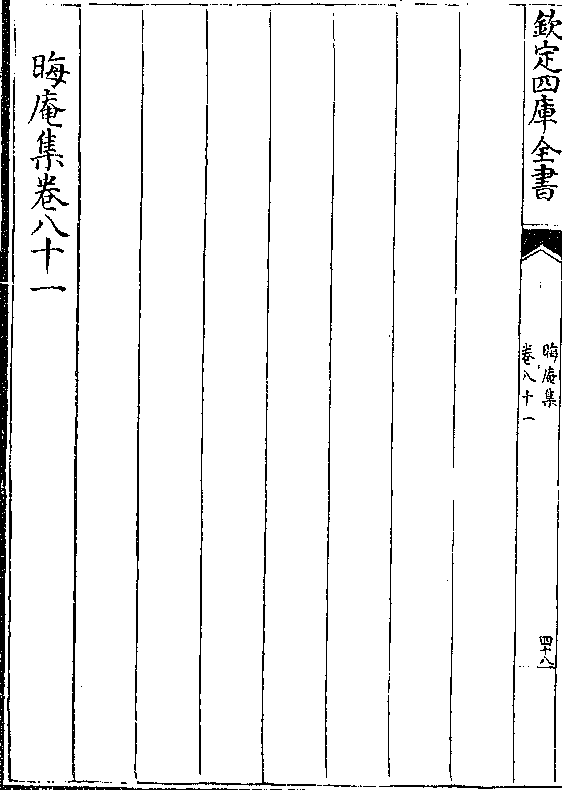 欽定四庫全書
晦庵集
卷八十一
四十八
晦庵集卷八十一